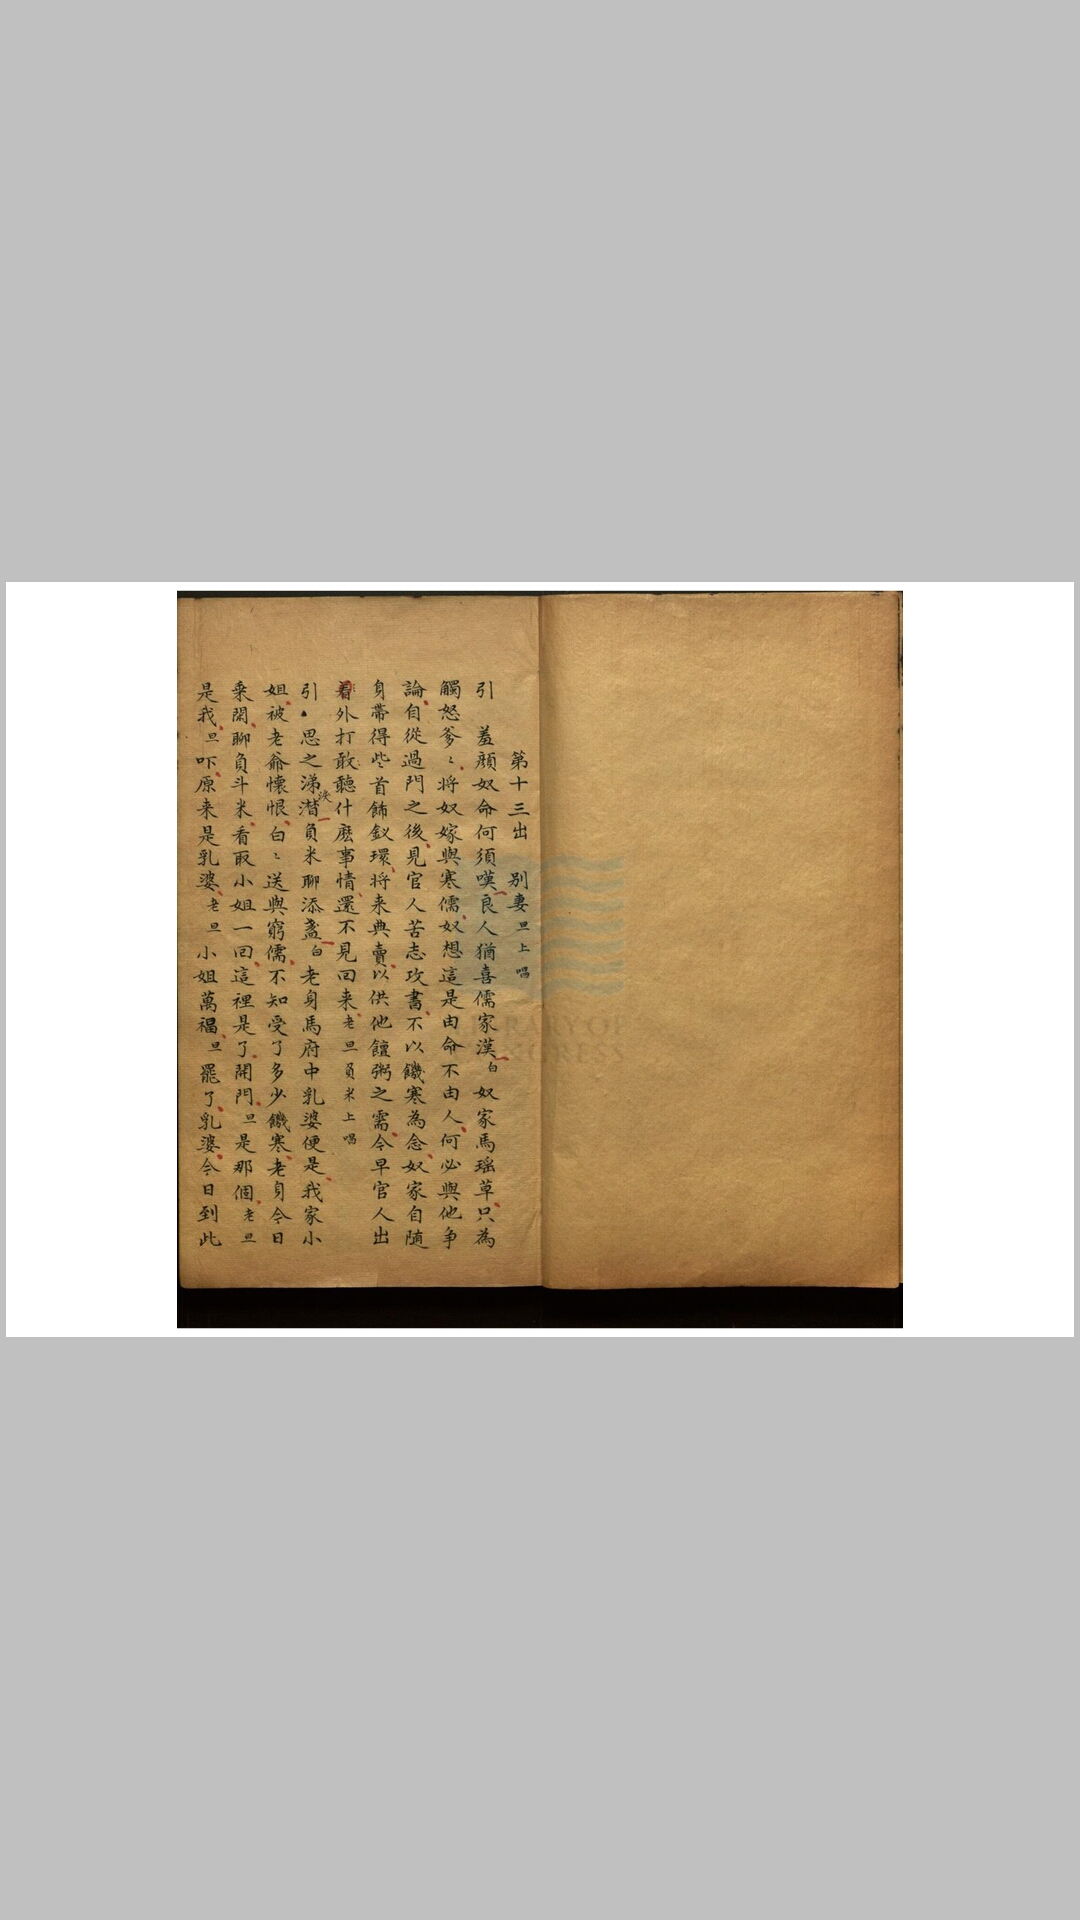 第十三出　別妻 旦上唱
引　羞顔奴命何須嘆良人猶喜儒家漢 白 奴家馬瑶草只為
觸怒爹〻將奴嫁與寒儒奴想這是由命不由人何必與他争
論自從過門之後見官人苦志攻書不以饑寒為念奴家自随
身帶得些首飾釵環将来典賣以供他饘粥之需今早官人出
着外打敢聽什麽事情還不見回来 老旦負米上唱
引　思之涕潸淚負米聊添盞 白 老身馬府中乳婆便是我家小
姐被老爺懷恨白〻送與窮儒不知受了多少饑寒老身今日
乘閑聊負斗米看取小姐一回這裡是了開門 旦 是那個 老旦
是我 旦 吓原来是乳婆 老旦 小姐萬福 旦 罷了乳婆今日到此
LIBRARY OF
CONGRESS